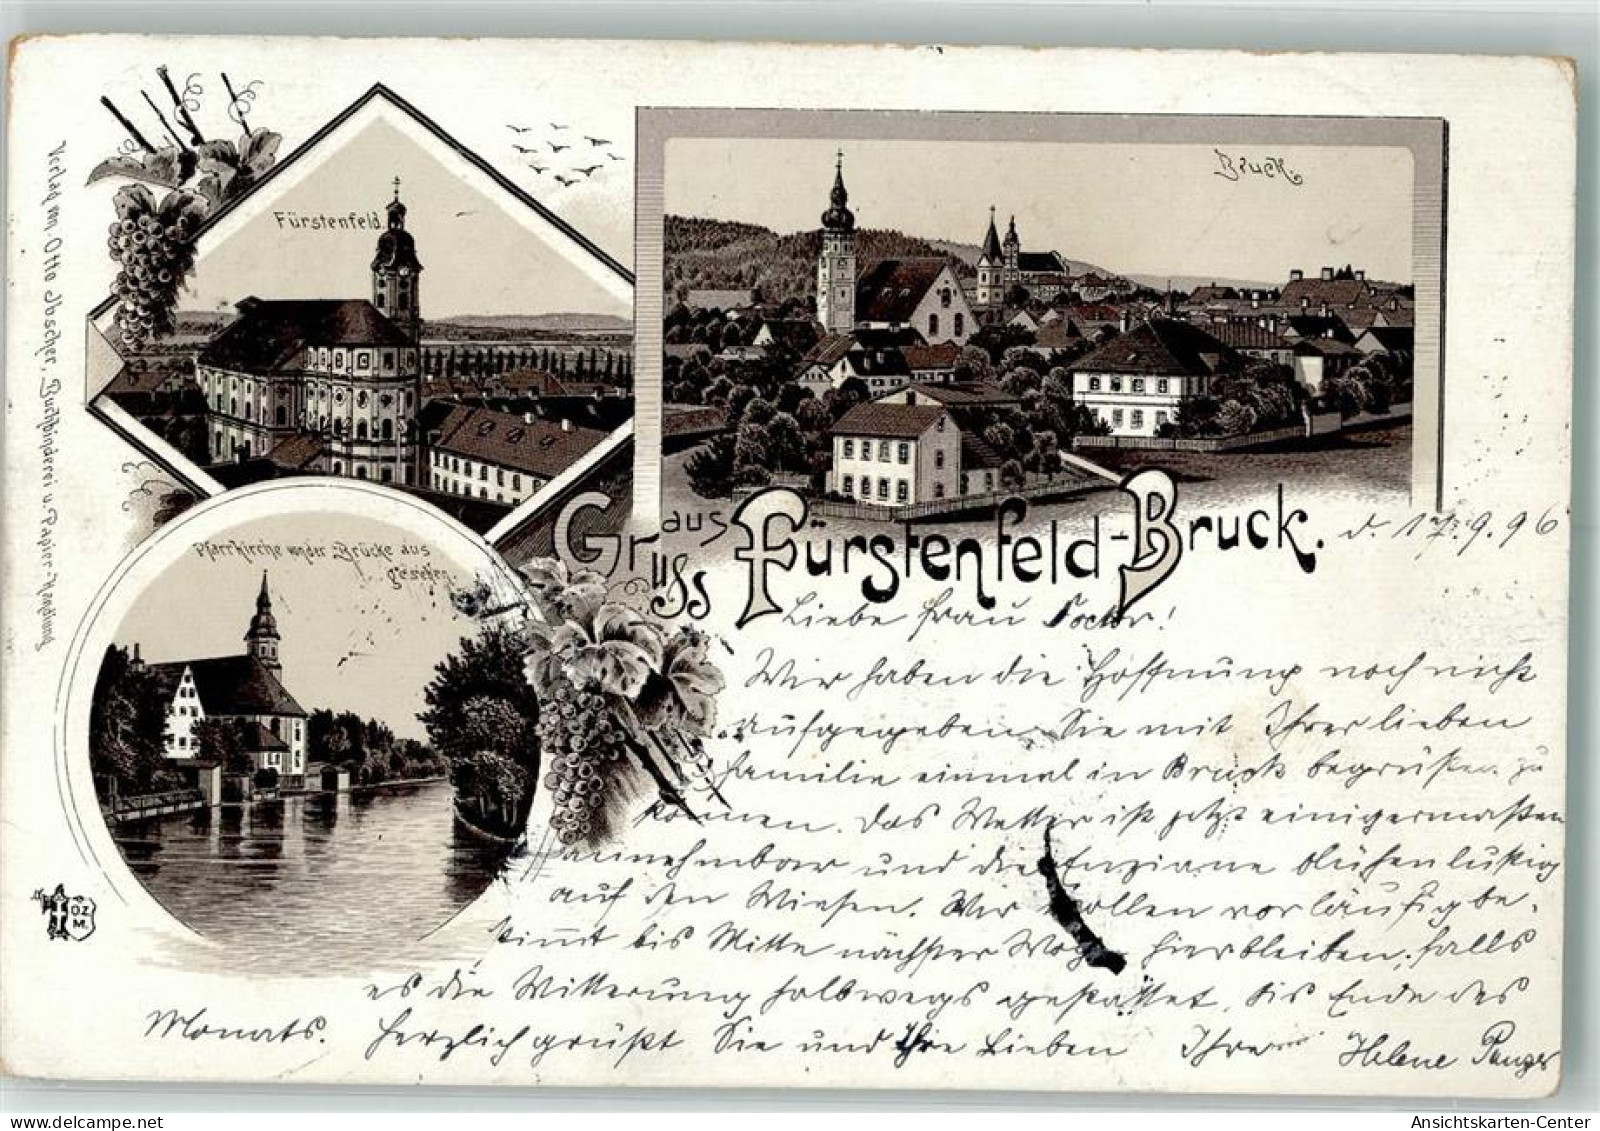 Verlag von Otto Abscher, Buchbinderei u. Papier-Handlung
Fürstenfeld.
Bruck.
Pfarrkirche von der Brücke aus
gesehen.
Gruss aus Fürstenfeld-Bruck. d. 17. 9. 96
Liebe Frau Doctor!
Wir haben die Hoffnung noch nicht
aufgegeben Sie mit Ihrer lieben
Familie einmal in Bruck begrüßen zu
können. Das Wetter ist jetzt einigermaßen
annehmbar und die Enziane blühen lustig
auf den Wiesen. Wir wollen vorläufig be-
stimmt bis Mitte nächster Woche hierbleiben, falls
es die Witterung halbwegs gestattet, bis Ende des
Monats. Herzlich grüßt Sie und Ihre Lieben Ihre Helene Panzer
OZ
M.
Ansichtskarten-Center